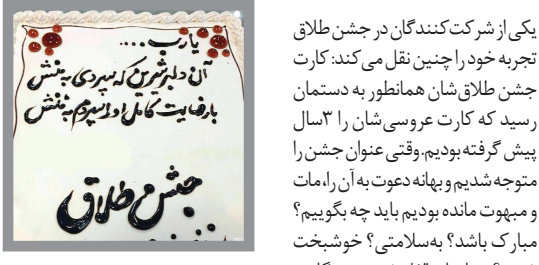 یکی از شرکت‌کنندگان در جشن طلاق
تجربه خود را چنین نقل می‌کند: کارت
جشن طلاق‌شان همانطور به دستمان
رسید که کارت عروسی‌شان را ۳سال
پیش گرفته بودیم. وقتی عنوان جشن را
متوجه شدیم و بهانه دعوت به آن را، مات
و مبهوت مانده بودیم باید چه بگوییم؟
مبارک باشد؟ به‌سلامتی؟ خوشبخت
یارب....
آن دلبر شیرین که سپردی به منش
با رضایت کامل او را سپردم به ننش
جشن طلاق